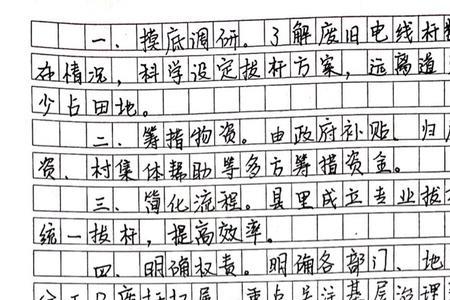 一、摸底调研。了解废旧电线杆
存情况，科学设定拔杆方案，远离道
少占田地。
二、筹措物资。由政府补贴、归
资、村集体帮助等多方筹措资金。
三、简化流程。县里成立专业拔
统一拔杆，提高效率。
四、明确权责。明确各部门、地